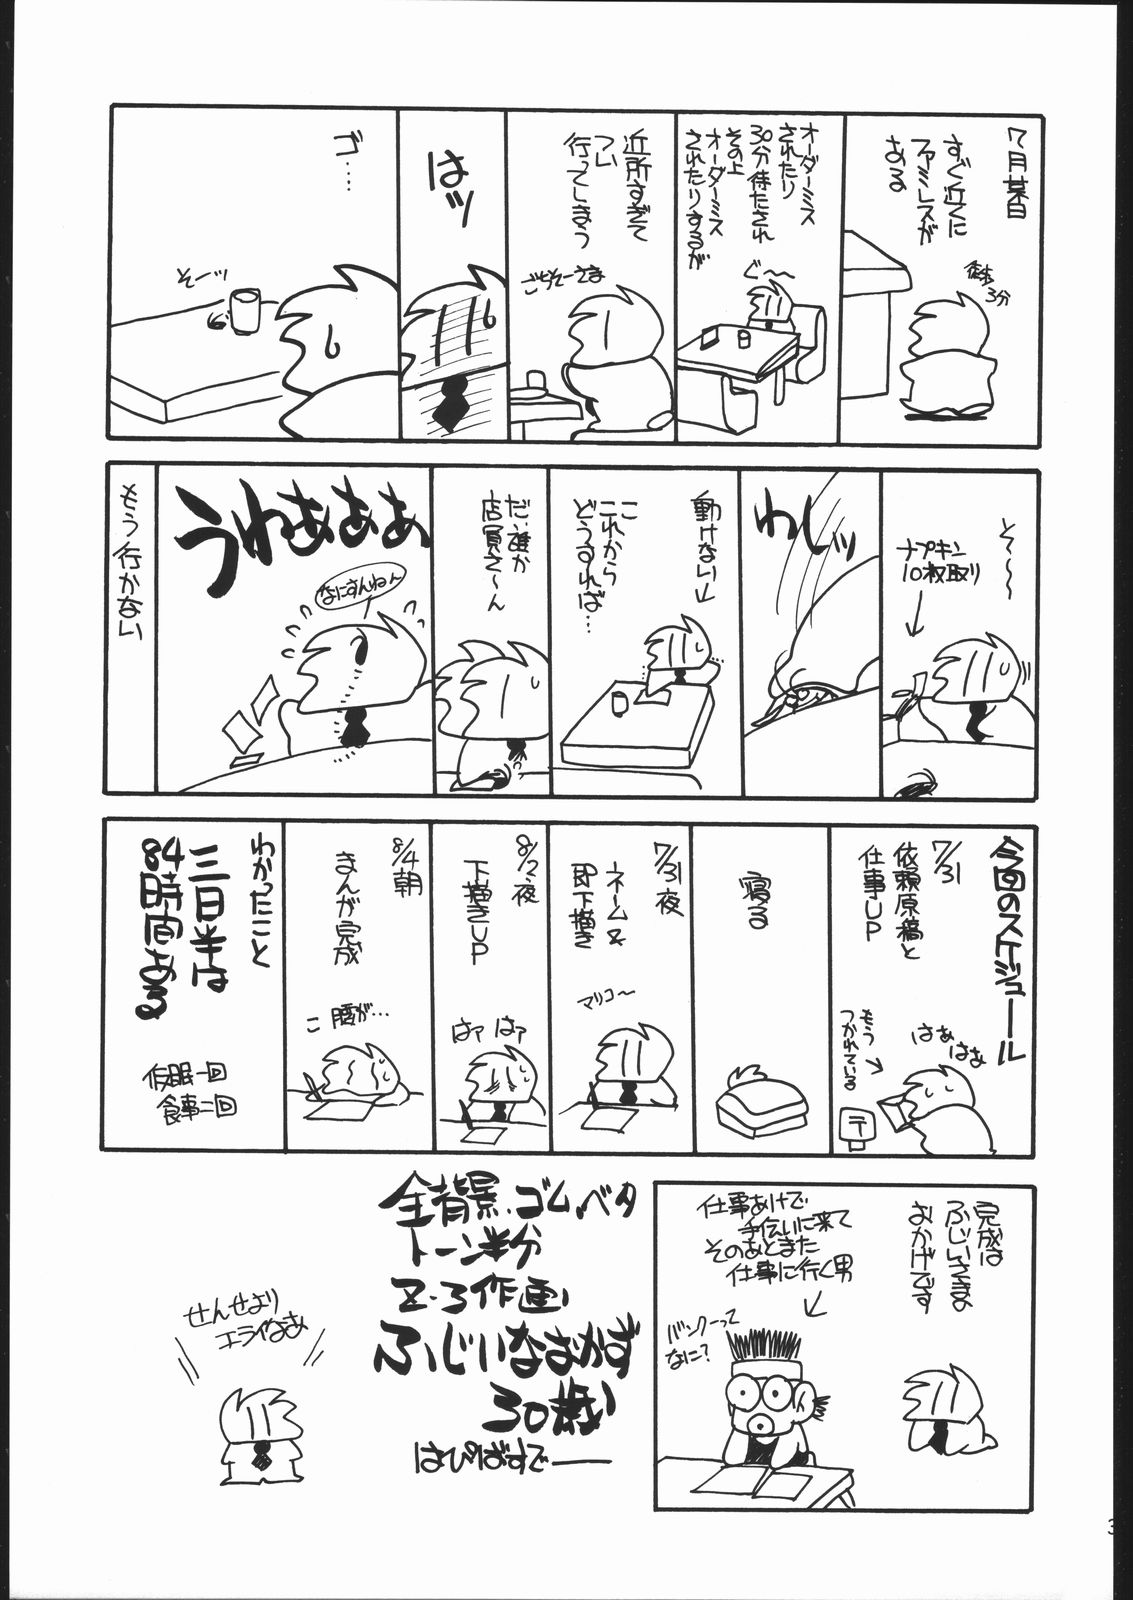 7月某日
すぐ近くに
ファミレスが
ある
徒歩
3分
オーダーミス
されたり
30分待たされ
その上
オーダーミス
されたりするが
ぐ〜
近所すぎて
つい
行ってしまう
ごちそーさま
はッ
ゴ……
そーッ
そ〜〜
ナプキン
10枚取り
わしッ
動けない
こ
これから
どうすれば…
だ、誰か
店員さ〜ん
うわぁぁぁ
なにすんねん
もう行かない
今回のスケジュール
7/31
依頼原稿と
仕事UP
もう
つかれている
はぁ
はぁ
〒
寝る
7/31夜
ネーム&
即下描き
マリコ〜
8/2夜
下描きUP
はァ はァ
8/4朝
まんが完成
こ 腰が…
わかったこと
三日半は
84時間ある
仮眠一回
食事二回
完成は
ふじいさまの
おかげです
仕事あけで
手伝いに来て
そのあとまた
仕事に行く男
バンクーって
なに?
全背景、ゴム、ベタ
トーン半分
Z・3作画
ふじいなおかず
30歳
はぴばすでー
せんせより
エライなぁ
3